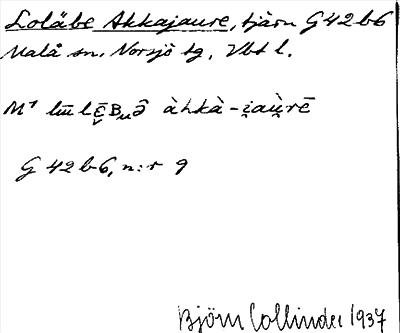 Loläbe Akkajaure, tjärn G42b6
Malå sn, Norsjö tg, Vbt l.
àhkà-i̭aù̯rē
G 42 b 6, n:r 9
Björn Collinder 1937